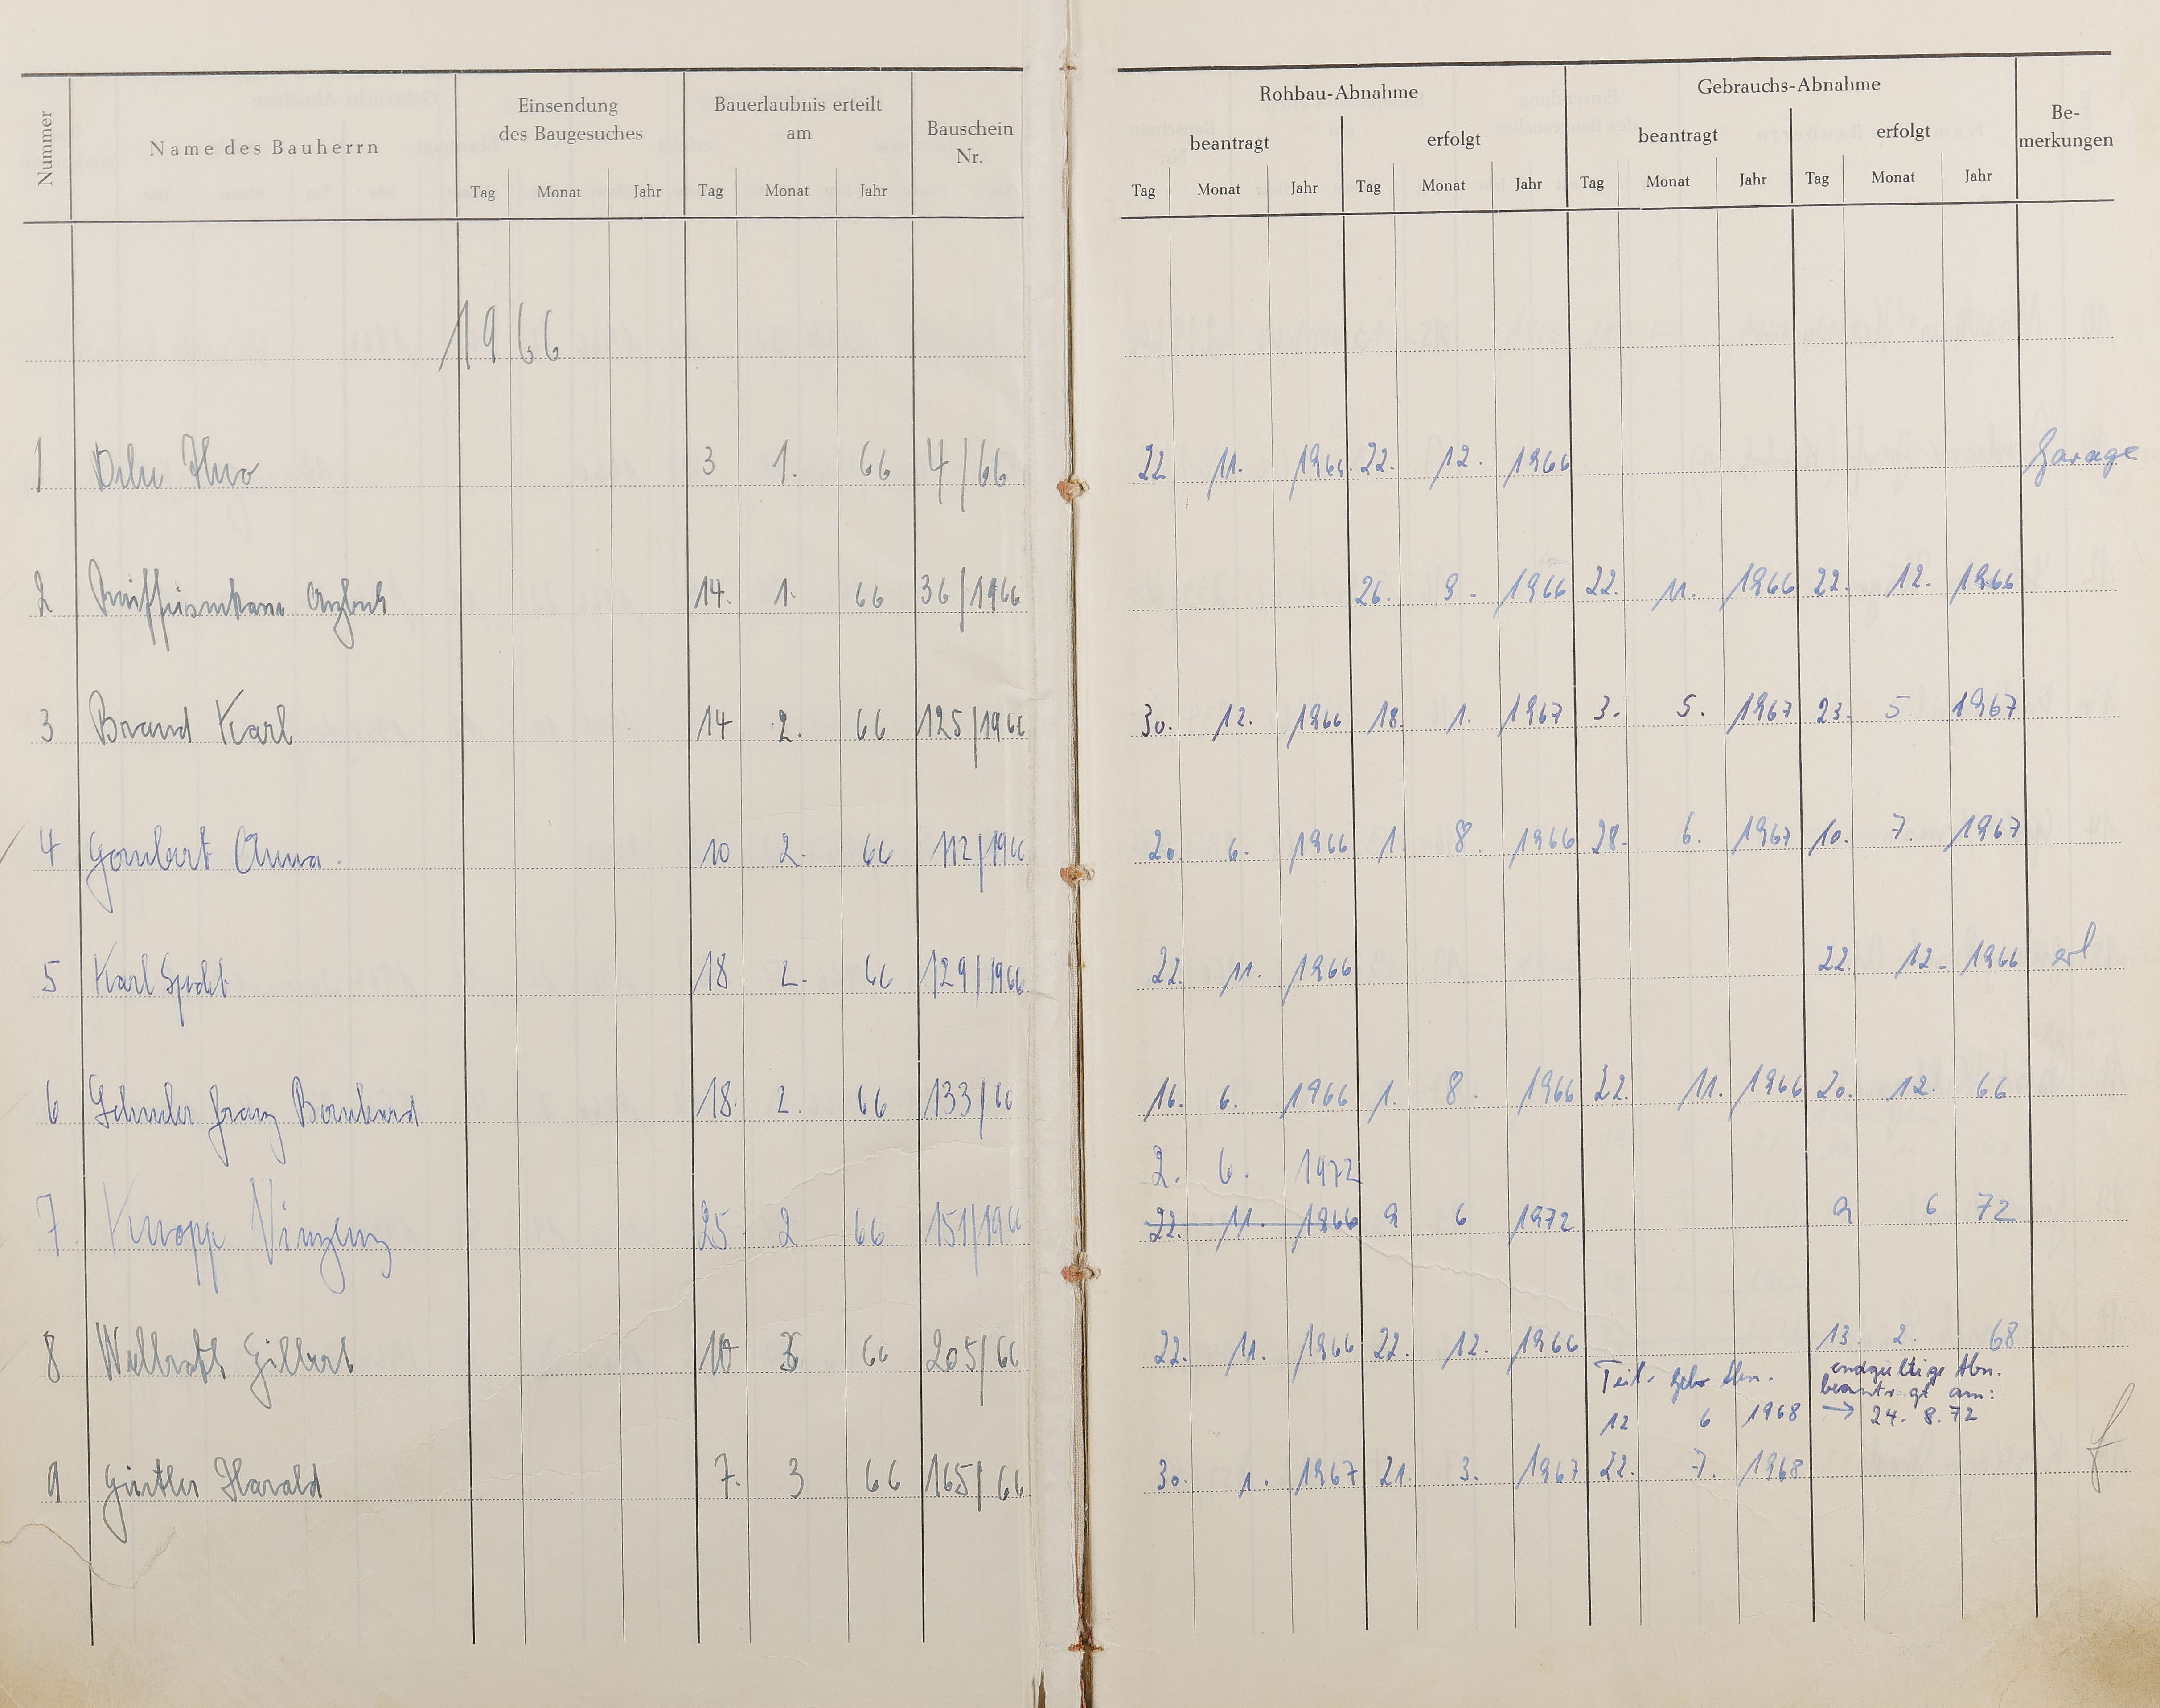 Nummer Name des Bauherrn Einsendung des Baugesuches Bauerlaubnis erteilt am Bauschein Nr. Rohbau-Abnahme Gebrauchs-Abnahme Be-merkungen
beantragt erfolgt beantragt erfolgt
Tag Monat Jahr Tag Monat Jahr Tag Monat Jahr Tag Monat Jahr Tag Monat Jahr Tag Monat Jahr
1966
1 3 1. 66 4/66 22. 11. 1966 22. 12. 1966 Garage
2 14. 1. 66 36/1966 26. 9. 1966 22. 11. 1966 22. 12. 1966
3 Brand Karl 14 2. 66 125/1966 30. 12. 1966 18. 1. 1967 3. 5. 1967 23. 5 1967
4 Gombert Anna. 10 2. 66 112/1966 20. 6. 1966 1. 8. 1966 28. 6. 1967 10. 7. 1967
5 Karl Specht 18 2. 66 129/1966 22. 11. 1966 22. 12. 1966 erl
6 Franz Bernhard 18. 2. 66 133/66 16. 6. 1966 1. 8. 1966 22. 11. 1966 20. 12. 66
2. 6. 1972
7 Knopp Vinzenz 25 2 66 151/1966 22. 11. 1966 9 6 1972 9 6 72
8 Wellbrock Gilbert 10 3 66 205/66 22. 11. 1966 22. 12. 1966 13. 2. 68
Teil- Gebr Abn. endgültige Abn.
beantragt am:
12 6 1968 → 24. 8. 72
9 Günther Harald 7. 3 66 165/66 30. 1. 1967 21. 3. 1967 22. 7. 1968